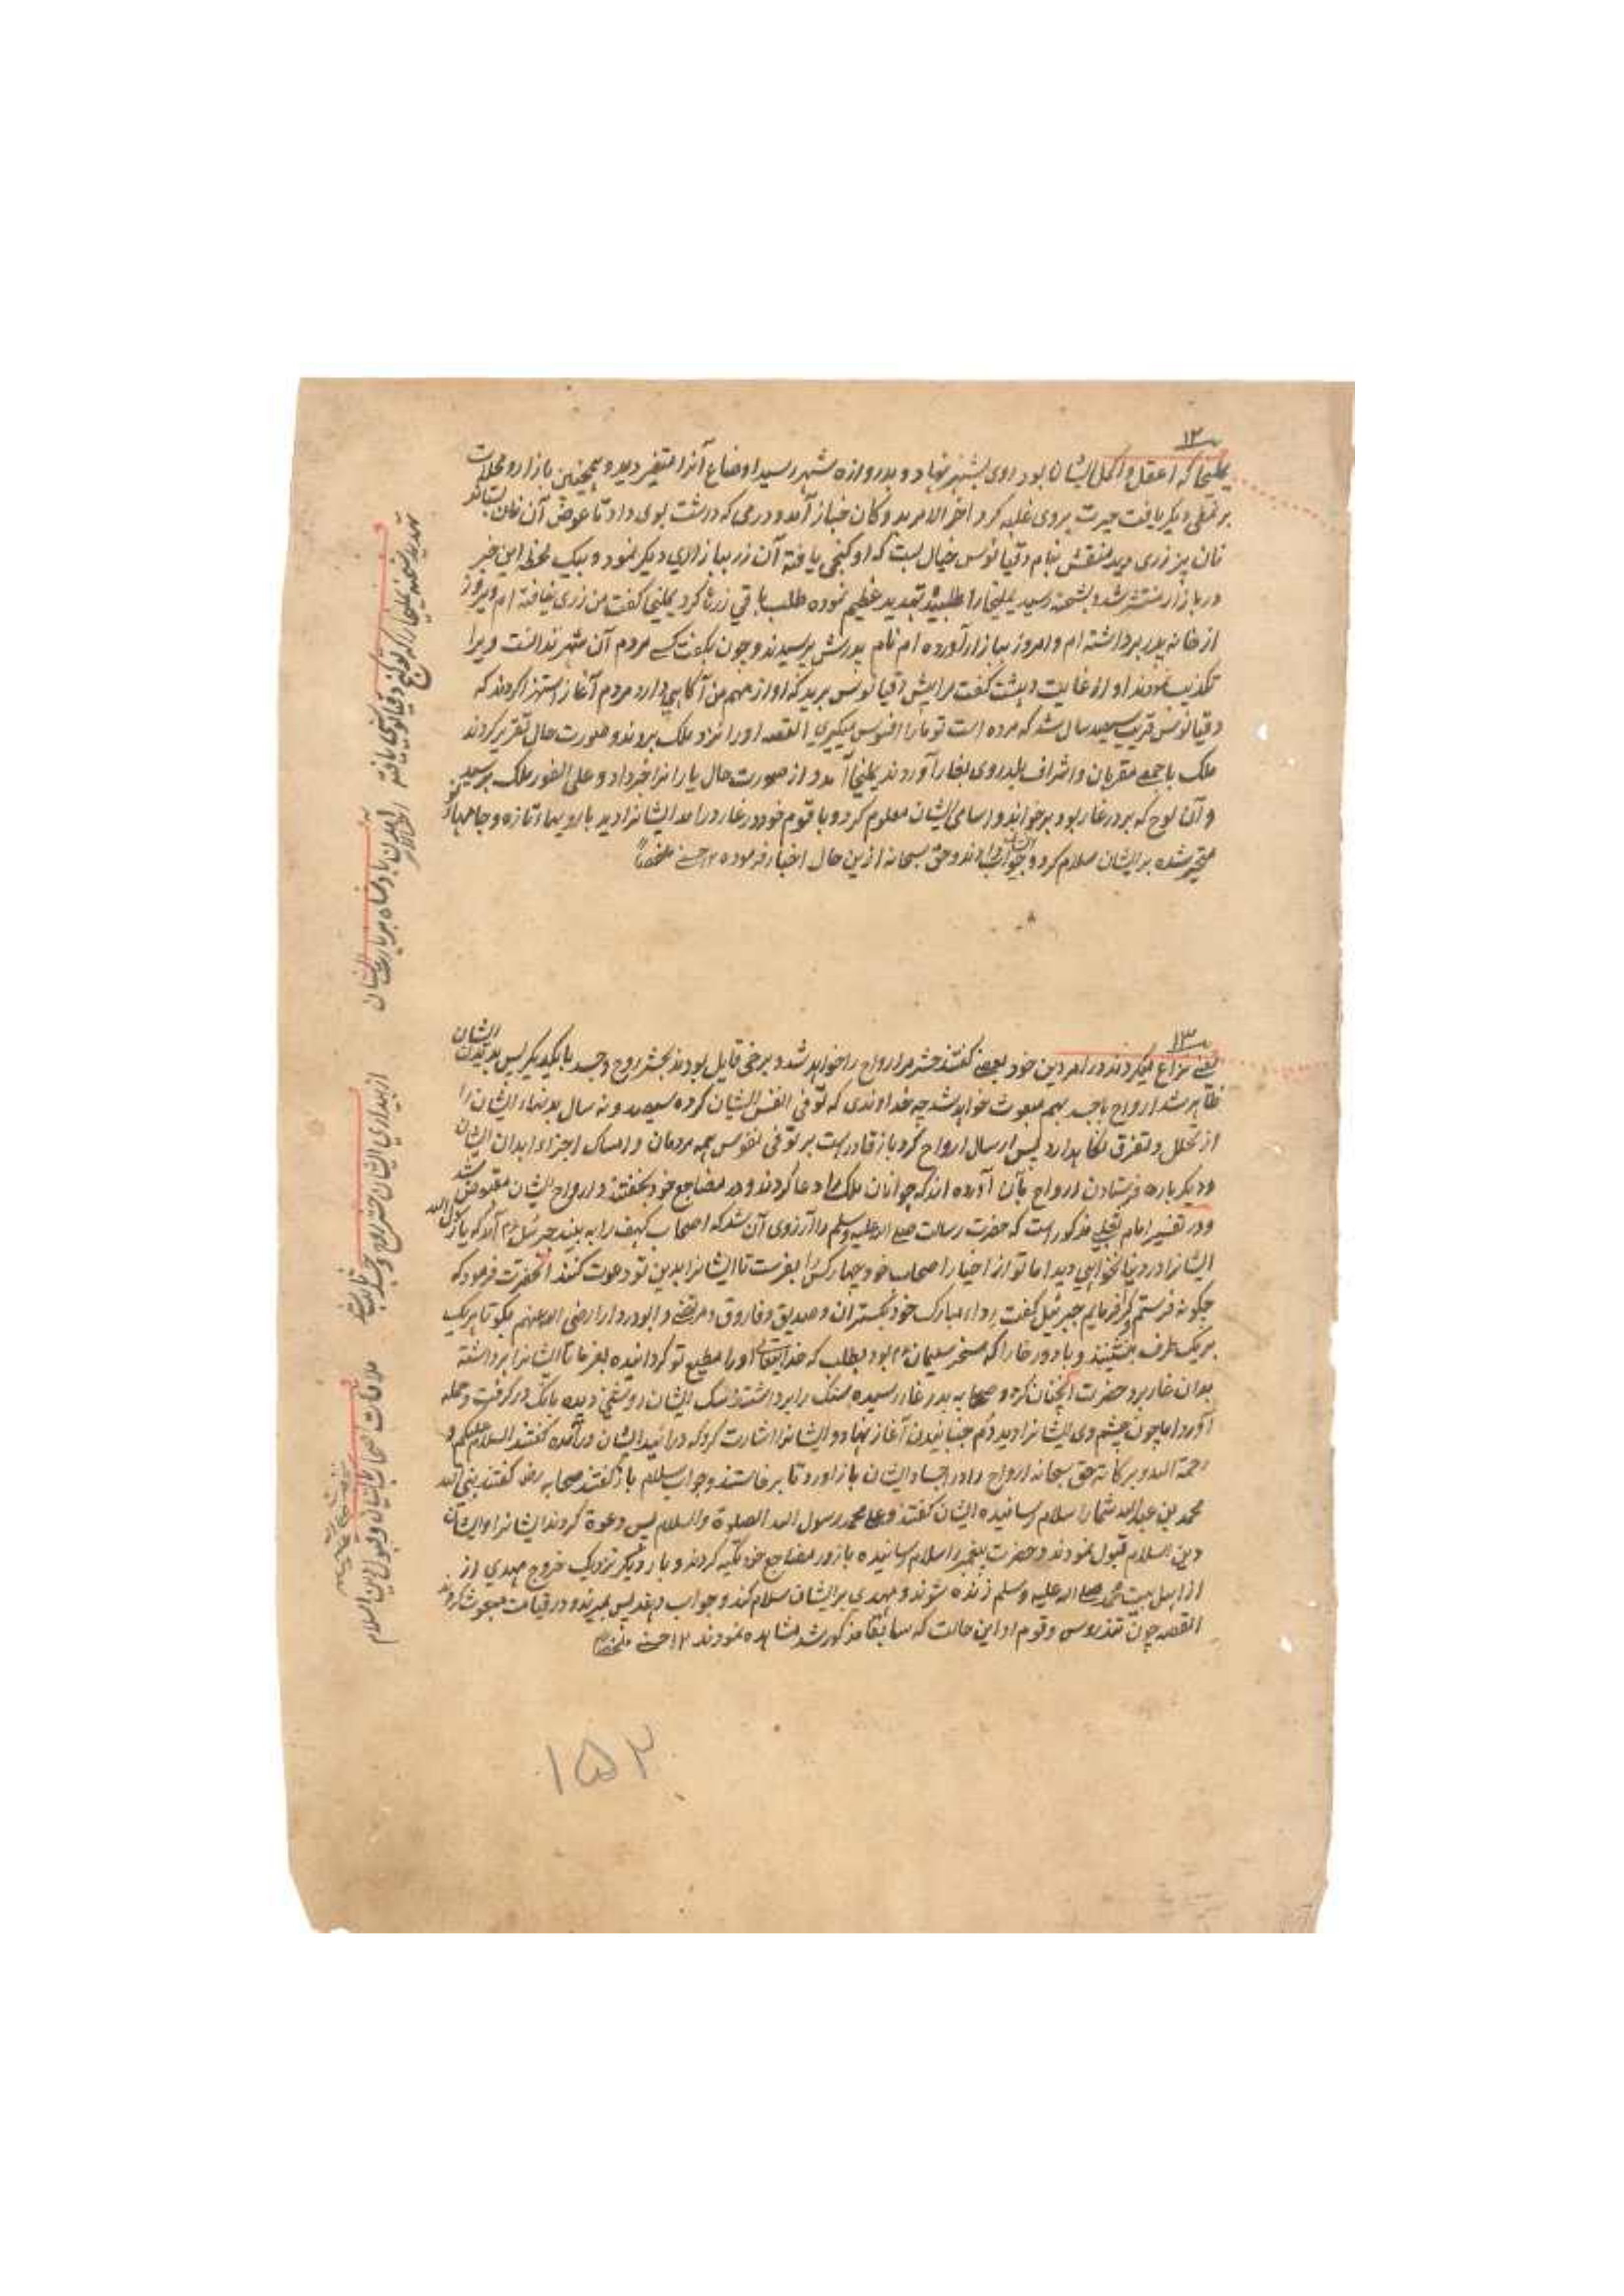 ۱۲
یملیخا که اعقل و اکمل ایشان بود روی بشهر نهاد و بدروازه شهر رسید اوضاع آنرا متغیر دید و همچنین بازار و محلات
بر نمطی دیگر یافت حیرت بروی غلبه کرد اخر الامر بدوکان خباز آمد و درمی که داشت بوی داد تا عوض آن نان بستاند
نان پز زری دید منقش بنام دقیانوس خیال بست که او گنجی یافته آن زر ببازاری دیگر نمود و بیک لحظه این خبر
در بازار منتشر شد و بشحنه رسید یملیخا را طلبید تهدید عظیم نموده طلب باقی زرها کرد یملیخا گفت من زری نیافته ام دیروز
از خانه پدر برداشته ام و امروز ببازار آورده ام نام پدرش پرسیدند و چون بگفت کسے مردم آن شهر ندانست ویرا
تکذیب نمودند او از غایت دهشت گفت مرا پیش دقیانوس برید که او از مهم من آگاهی دارد مردم آغاز استهزا کردند که
دقیانوس قریب سیصد سال شد که مرده است تو ما را افسوس میگیری القصه او را نزد ملک بردند و صورت حال تقریر کردند
ملک با جمعے مقربان و اشراف بلد روی بغار آوردند یملیخا آمد و از صورت حال یارانرا خبر داد و علی الفور ملک برسید
و آن لوح که بر در غار بود برخواند و اسامی ایشان معلوم کرد و با قوم خود در غار درامد ایشانرا دید با رویهای تازه و جامهای
متحیر شده بر ایشان سلام کرد و جواب دادند و حق سبحانه ازین حال اخبار فرموده ۱۲ حسینے ملخصاً
۱۳
یعنے نزاع میکردند در امر دین خود بعضے گفتند حشر مر ارواح را خواهد شد و برخی قایل بودند بحشر روح و جسد با یکدیگر پس بدیدن ایشان
ظاهر شد ارواح با جسد بهم مبعوث خواهد شد چه خداوندی که توفی انفس ایشان کرده سیصد و نه سال بدنهاء ایشان را
از تحلل و تفرق نگاهدارد پس ارسال ارواح کرد باز قادر است بر توفی نفوس همه مردمان و امساک اجزاء ابدان ایشان
و دیگر باره فرستادن ارواح بآن آورده اند که جوانان ملک را دعا کردند و در مضاجع خود بخفتند و ارواح ایشان مقبوض شد
و در تفسیر امام ثعلبے مذکور است که حضرت رسالت صلے الله علیه وسلم را آرزوی آن شد که اصحاب کهف را به بیند جبرئیل ۴م آمد که یا رسول الله
ایشانرا در دنیا نخواهی دید اما تو از اخیار اصحاب خود چهار کس را بفرست تا ایشانرا بدین تو دعوت کنند آنحضرت فرمود که
چگونه فرستم و کرا فرمایم جبرئیل گفت رداء مبارک خود بگستران و صدیق و فاروق و مرتضے و ابودردا را رضی الله عنهم بگو تا هر یک
بر یک طرف بنشینند و باد رخا را که مسخر سلیمان ۴م بود بطلب که خدایتعالی او را مطیع تو گردانیده بفرما تا ایشانرا برداشته
بدان غار برد حضرت آنچنان کرد و صحابه بدر غار رسیده سنگ را برداشتند سگ ایشان روشنی دیده بانگ در گرفت و حمله
آورد اما چون چشم وی ایشانرا دید دم جنبانیدن آغاز نهاد و ایشانرا اشارت کرد که درائید ایشان درآمده گفتند السلام علیکم و
رحمة الله و برکاته حق سبحانه ارواح را در اجساد ایشان باز آورد تا برخاستند و جواب سلام باز گفتند صحابه رض گفتند نبی الله
محمد بن عبدالله شما را سلام رسانیده ایشان گفتند و علی محمد رسول الله الصلوة والسلام پس دعوة کردند ایشانرا و ایشان
دین اسلام قبول نمودند و حضرت پیغمبر را سلام رسانیده باز در مضاجع خود تکیه کردند و بار دیگر نزدیک خروج مهدی از
از اهل بیت محمد صلے الله علیه وسلم زنده شوند و مهدی بر ایشان سلام کند و جواب دهند پس بمیرند و در قیامت مبعوث گردند
القصه چون تندروس و قوم او این حالت که سابقا مذکور شد مشاهده نمودند ۱۲ حسینے ملخصاً
تهدید شحنه یملیخا را که تو گنج دقیانوسی یافته
آمدن بادشاه بزیارت ایشان
از بیداری ایشان حشر روح و جسد ثابت شد
ملاقات اصحاب بایشان و قبول دین اسلام
۱۵۲